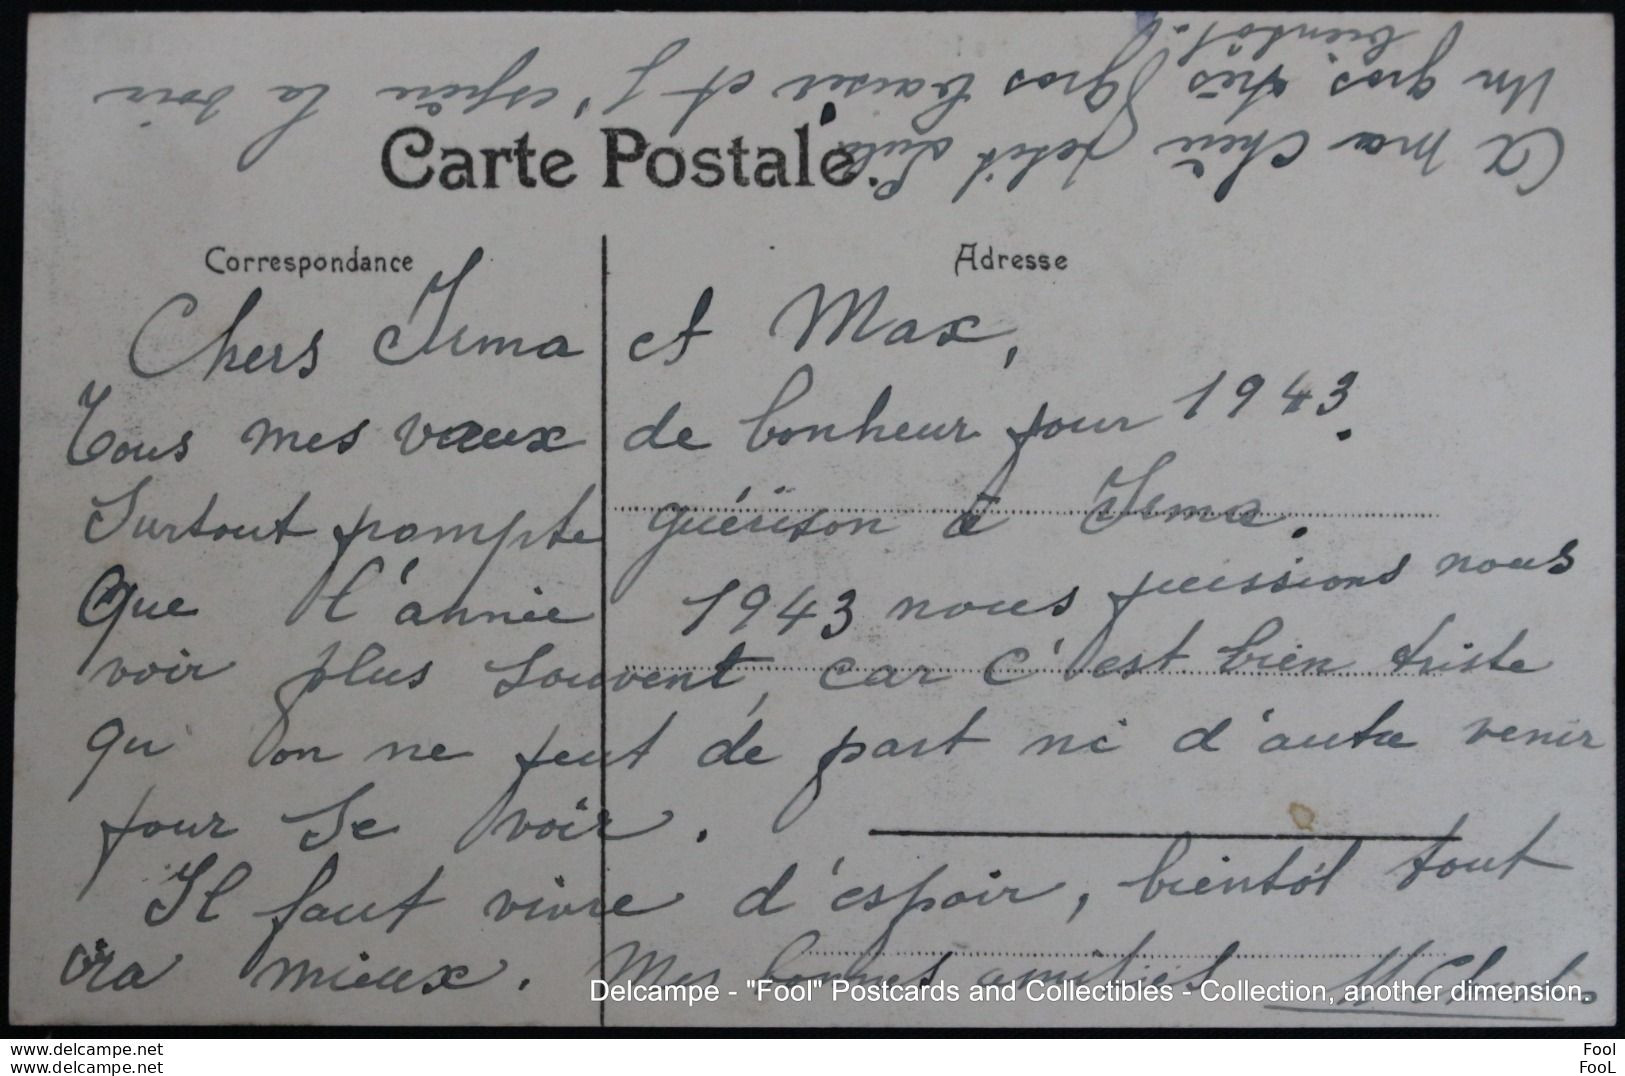 Carte Postale.
Correspondance
Adresse
Chers Irma et Max,
Tous mes vœux de bonheur pour 1943.
Surtout prompte guérison à Irma.
Que l'année 1943 nous puissions nous
voir plus souvent, car c'est bien triste
qu'on ne peut de part ni d'autre venir
pour se voir.
Il faut vivre d'espoir, bientôt tout
ira mieux. Mes bonnes amitiés
A ma chère petite
Un gros, très gros baiser et j'espère la voir
bientôt.
Delcampe - "Fool" Postcards and Collectibles - Collection, another dimension.
www.delcampe.net
www.delcampe.net
Fool
FooL